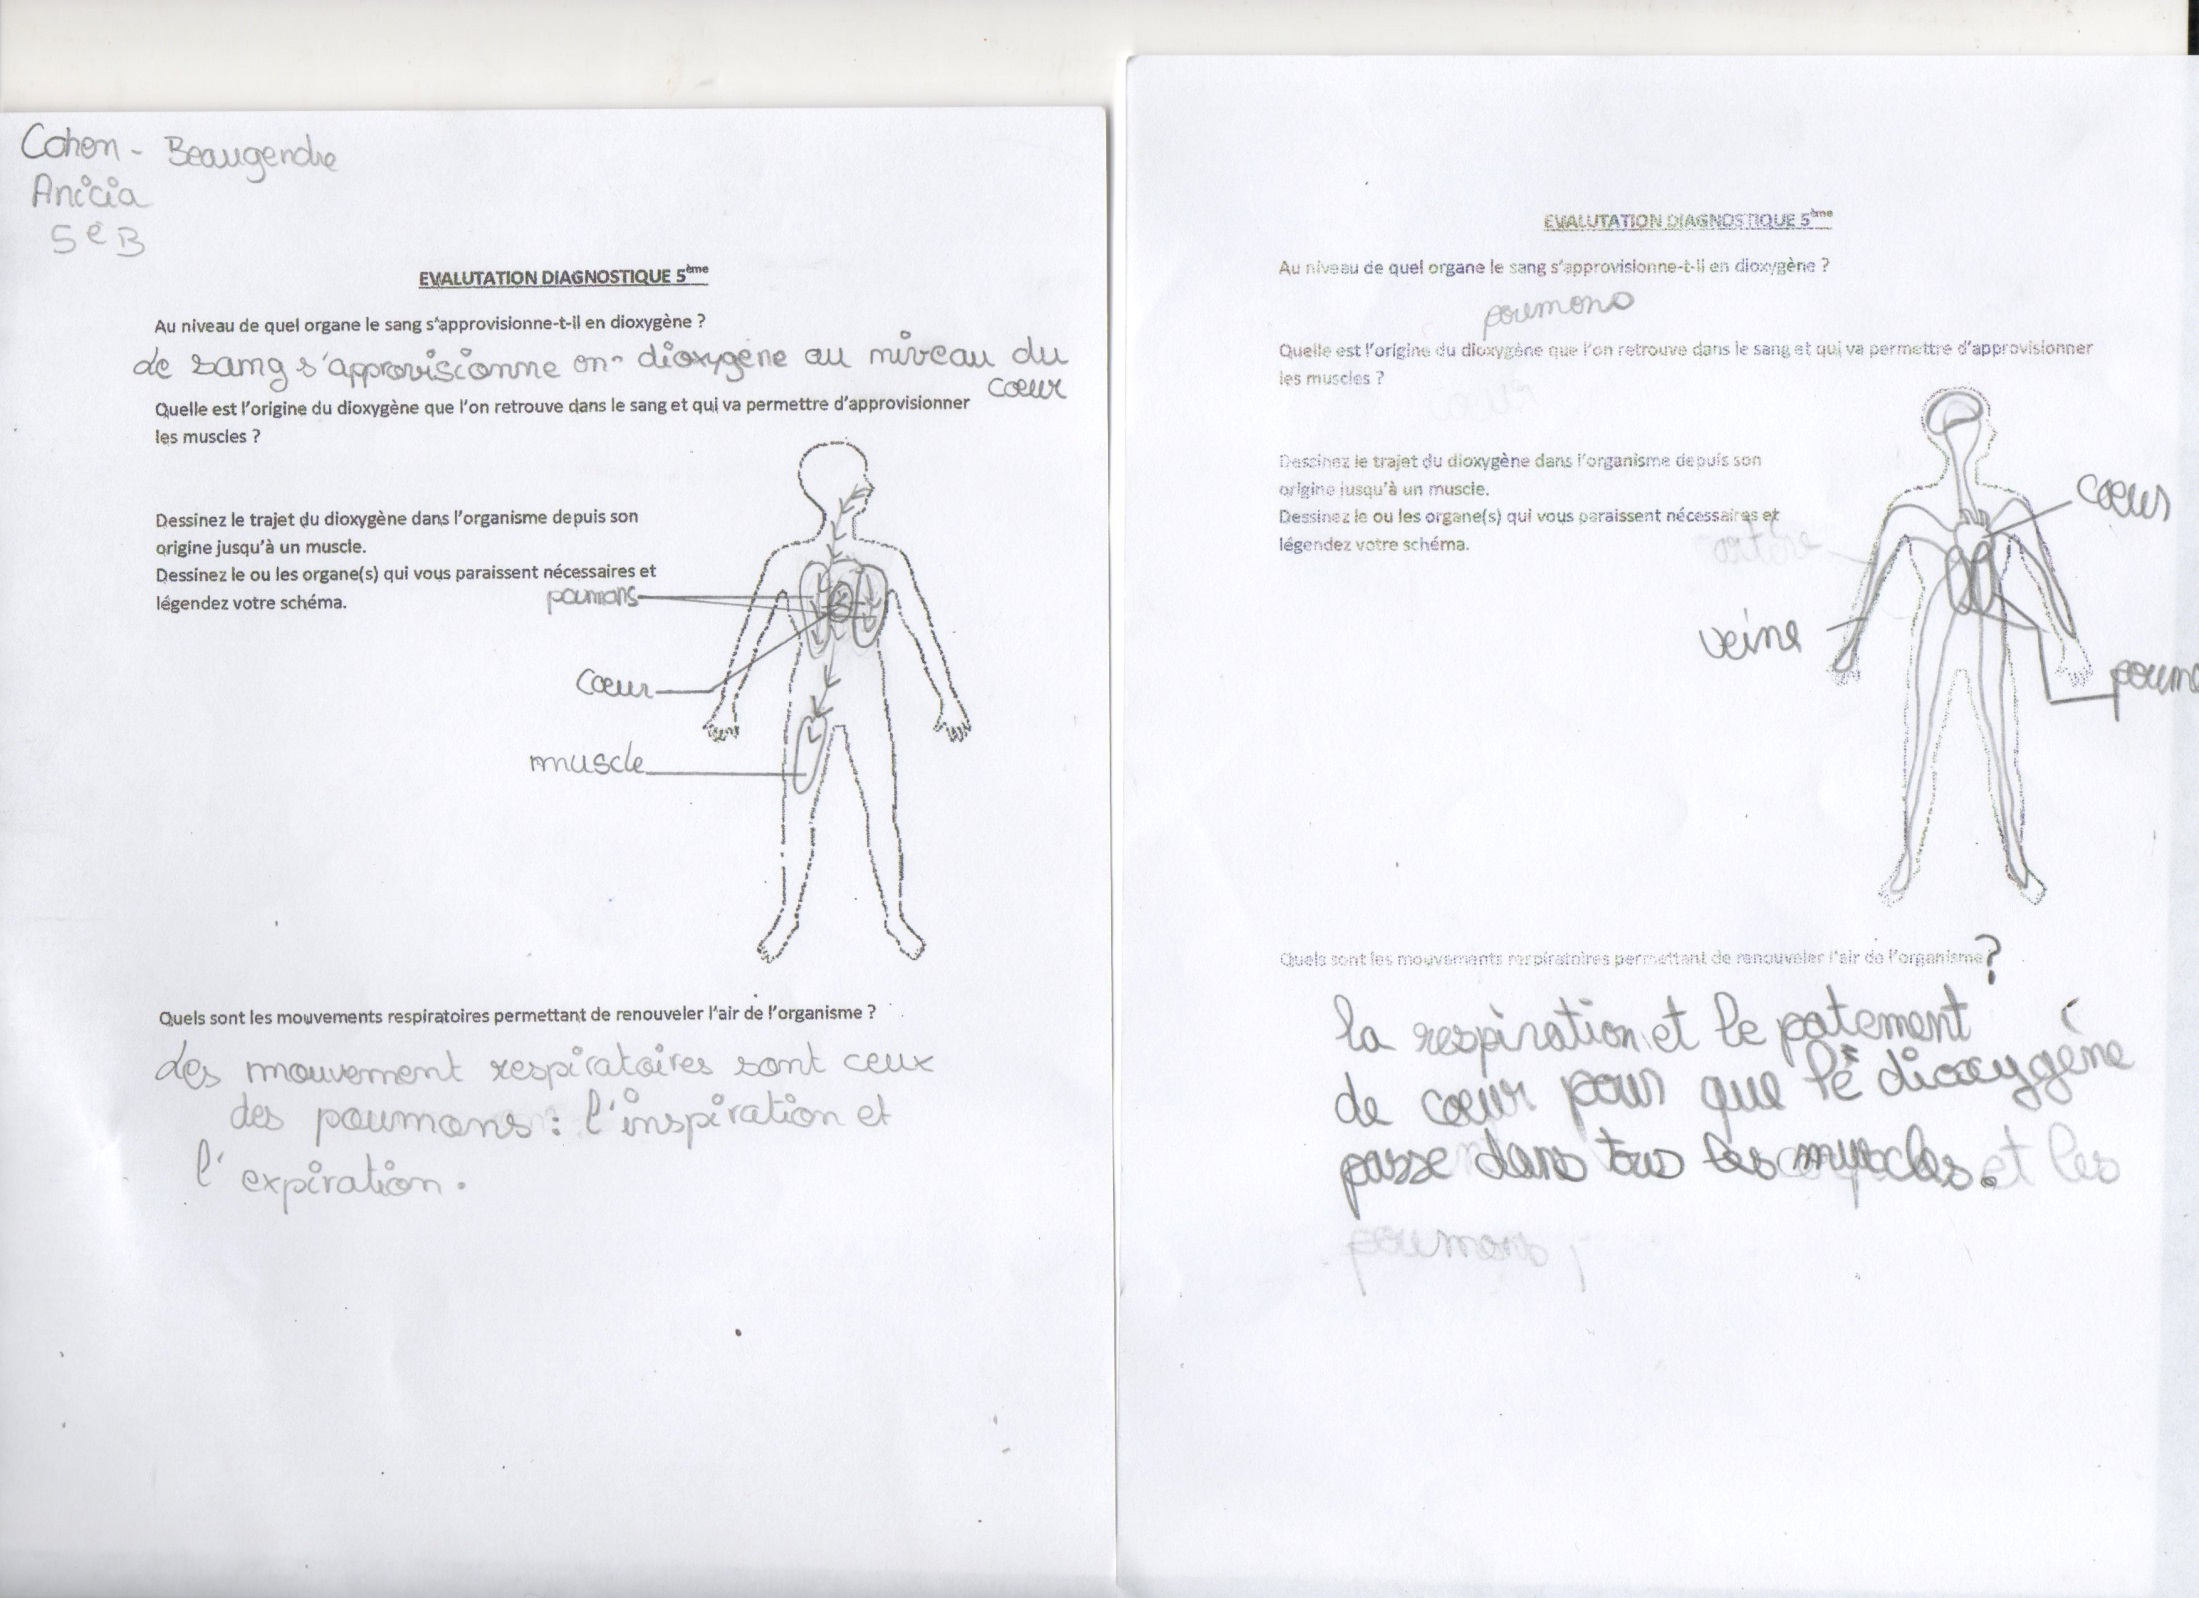 Cohen - Beaugendre
Anicia
5e B
EVALUTATION DIAGNOSTIQUE 5ème
Au niveau de quel organe le sang s'approvisionne-t-il en dioxygène ?
Le sang s'approvisionne en dioxygène au niveau du
cœur
Quelle est l'origine du dioxygène que l'on retrouve dans le sang et qui va permettre d'approvisionner
les muscles ?
Dessinez le trajet du dioxygène dans l'organisme depuis son
origine jusqu'à un muscle.
Dessinez le ou les organe(s) qui vous paraissent nécessaires et
légendez votre schéma.
poumons
cœur
muscle
Quels sont les mouvements respiratoires permettant de renouveler l'air de l'organisme ?
Les mouvement respiratoires sont ceux
des poumons : l'inspiration et
l'expiration.
EVALUTATION DIAGNOSTIQUE 5ème
Au niveau de quel organe le sang s'approvisionne-t-il en dioxygène ?
poumons
Quelle est l'origine du dioxygène que l'on retrouve dans le sang et qui va permettre d'approvisionner
les muscles ?
Dessinez le trajet du dioxygène dans l'organisme depuis son
origine jusqu'à un muscle.
Dessinez le ou les organe(s) qui vous paraissent nécessaires et
légendez votre schéma.
cœur
artère
veine
poumo
Quels sont les mouvements respiratoires permettant de renouveler l'air de l'organisme ?
la respiration et le patement
de cœur pour que le dioxygène
passe dans tous les muscles. et les
poumons